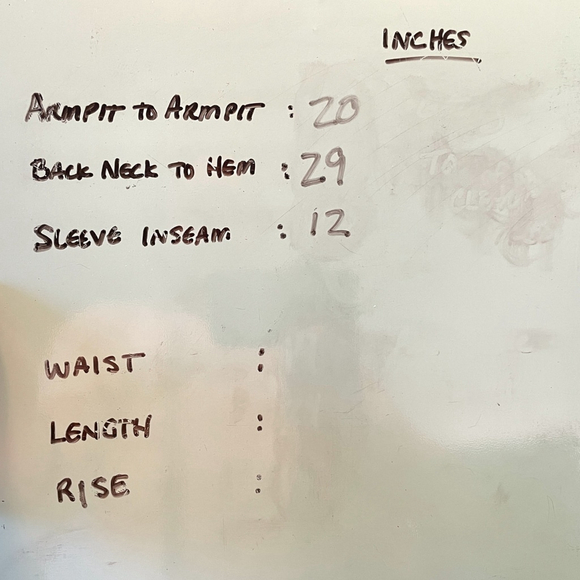 INCHES
ARMPIT TO ARMPIT : 20
BACK NECK TO HEM : 29
SLEEVE INSEAM : 12
WAIST :
LENGTH :
RISE :